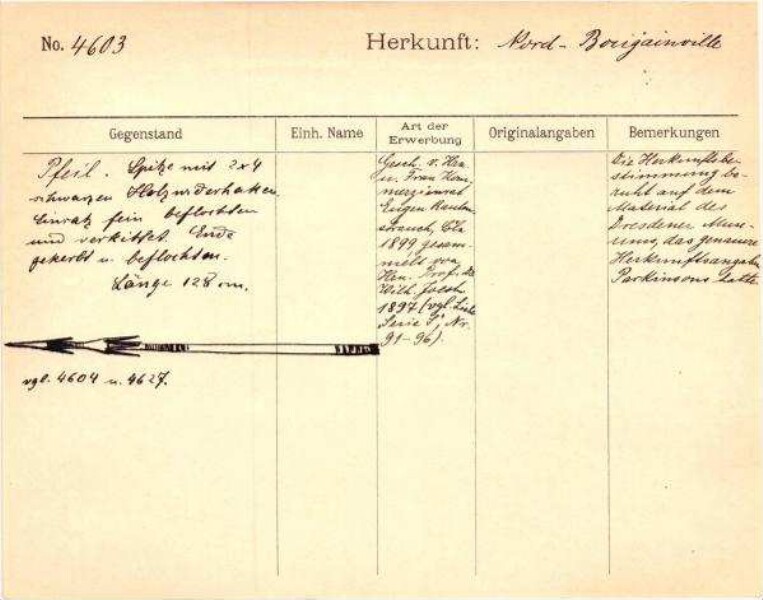 No. 4603
Herkunft: Nord-Bougainville
Gegenstand
Einh. Name
Art der
Erwerbung
Originalangaben
Bemerkungen
Pfeil. Spitze mit 2x4
schwarzen Holzwiderhaken.
Einsatz fein beflochten
und verkittet. Ende
gekerbt u. beflochten.
Länge 128 cm.
vgl. 4604 u. 4627.
Gesch. v. Hrn.
u. Frau Kom-
merzienrat
Eugen Rauten-
strauch, Cöln
1899 gesam-
melt von
Hrn. Prof. Dr.
Wilh. Joest
1897 (vgl. Liste
Serie S, Nr.
91-96).
Die Herkunftsbe-
stimmung be-
ruht auf dem
Material des
Dresdener Muse-
ums, das genauere
Herkunftsangaben
Parkinsons hatte.